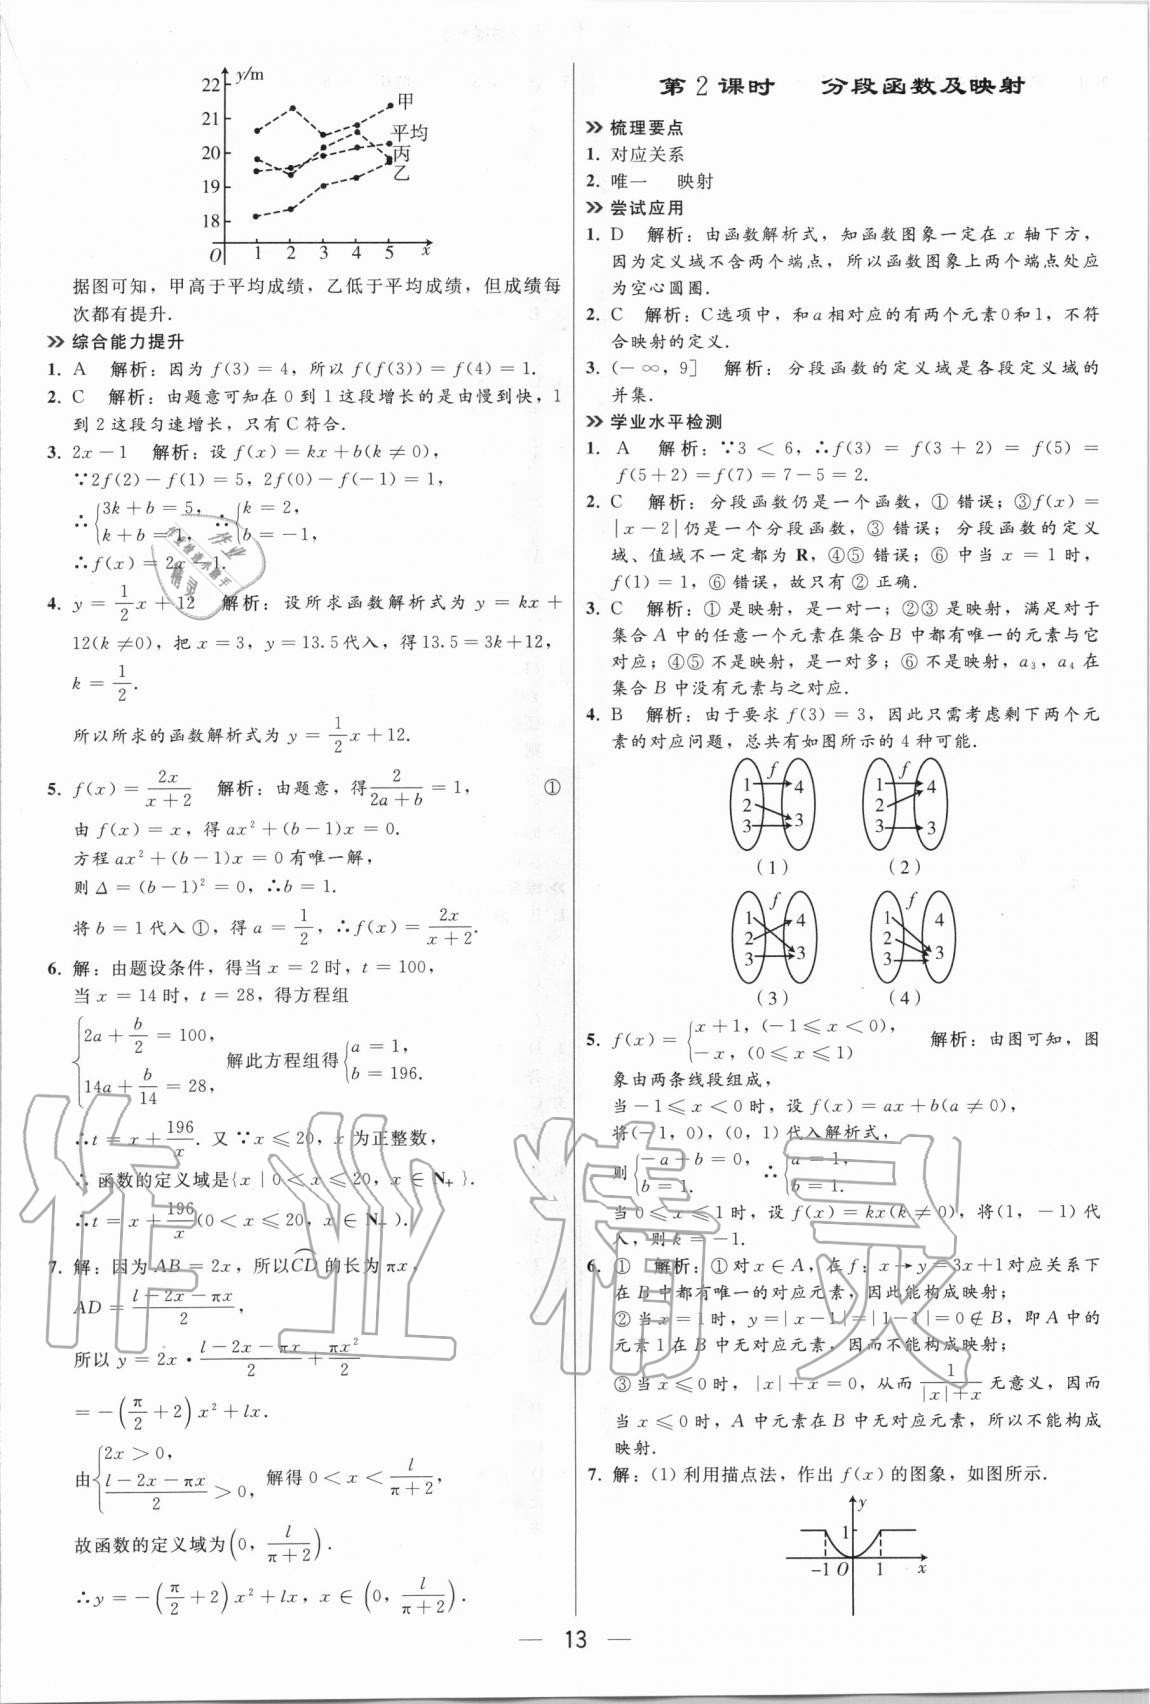 y/m
22
21
20
19
18
甲
平均
丙
乙
O 1 2 3 4 5 x
据图可知，甲高于平均成绩，乙低于平均成绩，但成绩每
次都有提升．
综合能力提升
1. A 解析：因为 f(3)＝4，所以 f(f(3))＝f(4)＝1.
2. C 解析：由题意可知在 0 到 1 这段增长的是由慢到快，1
到 2 这段匀速增长，只有 C 符合．
3. 2x－1 解析：设 f(x)＝kx＋b(k≠0)，
∵2f(2)－f(1)＝5，2f(0)－f(－1)＝1，
∴{3k＋b＝5，k＋b＝1，∴{k＝2，b＝－1，
∴f(x)＝2x－1.
4. y＝1/2x＋12 解析：设所求函数解析式为 y＝kx＋
12(k≠0)，把 x＝3，y＝13.5代入，得13.5＝3k＋12，
k＝1/2.
所以所求的函数解析式为 y＝1/2x＋12.
5. f(x)＝2x/(x＋2) 解析：由题意，得2/(2a＋b)＝1， ①
由 f(x)＝x，得 ax²＋(b－1)x＝0.
方程 ax²＋(b－1)x＝0 有唯一解，
则 Δ＝(b－1)²＝0，∴b＝1.
将 b＝1 代入 ①，得 a＝1/2，∴f(x)＝2x/(x＋2).
6. 解：由题设条件，得当 x＝2 时，t＝100，
当 x＝14 时，t＝28，得方程组
{2a＋b/2＝100，14a＋b/14＝28，解此方程组得{a＝1，b＝196.
∴t＝x＋196/x. 又∵x≤20，x 为正整数，
∴ 函数的定义域是{x｜0＜x≤20，x∈N₊}.
∴t＝x＋196/x(0＜x≤20，x∈N₊).
7. 解：因为 AB＝2x，所以C͡D的长为 πx，
AD＝(l－2x－πx)/2，
所以 y＝2x·(l－2x－πx)/2＋πx²/2
＝－(π/2＋2)x²＋lx.
由{2x＞0，(l－2x－πx)/2＞0，解得 0＜x＜l/(π＋2)，
故函数的定义域为(0，l/(π＋2)).
∴y＝－(π/2＋2)x²＋lx，x∈(0，l/(π＋2)).
第 2 课时 分段函数及映射
梳理要点
1. 对应关系
2. 唯一 映射
尝试应用
1. D 解析：由函数解析式，知函数图象一定在 x 轴下方，
因为定义域不含两个端点，所以函数图象上两个端点处应
为空心圆圈．
2. C 解析：C选项中，和 a 相对应的有两个元素0和1，不符
合映射的定义．
3. (－∞，9] 解析：分段函数的定义域是各段定义域的
并集．
学业水平检测
1. A 解析：∵3＜6，∴f(3)＝f(3＋2)＝f(5)＝
f(5＋2)＝f(7)＝7－5＝2.
2. C 解析：分段函数仍是一个函数，① 错误；③f(x)＝
|x－2|仍是一个分段函数，③ 错误；分段函数的定义
域、值域不一定都为 R，④⑤ 错误；⑥ 中当 x＝1 时，
f(1)＝1，⑥ 错误，故只有 ② 正确．
3. C 解析：① 是映射，是一对一；②③ 是映射，满足对于
集合 A 中的任意一个元素在集合 B 中都有唯一的元素与它
对应；④⑤ 不是映射，是一对多；⑥ 不是映射，a₃，a₄ 在
集合 B 中没有元素与之对应．
4. B 解析：由于要求 f(3)＝3，因此只需考虑剩下两个元
素的对应问题，总共有如图所示的 4 种可能．
f f
1 4 1 4
2 2
3 3 3 3
(1) (2)
f f
1 4 1 4
2 2
3 3 3 3
(3) (4)
5. f(x)＝{x＋1，(－1≤x＜0)，－x，(0≤x≤1) 解析：由图可知，图
象由两条线段组成，
当－1≤x＜0 时，设 f(x)＝ax＋b(a≠0)，
将(－1，0)，(0，1)代入解析式，
则{－a＋b＝0，b＝1. ∴{a＝1，b＝1.
当 0≤x≤1 时，设 f(x)＝kx(k≠0)，将(1，－1)代
入，则 k＝－1.
6. ① 解析：①对 x∈A，在 f：x→y＝3x＋1对应关系下
在 B 中都有唯一的对应元素，因此能构成映射；
②当 x＝1时，y＝|x－1|＝|1－1|＝0∉B，即 A 中的
元素1在 B 中无对应元素，因而不能构成映射；
③当 x≤0时，|x|＋x＝0，从而1/(|x|＋x)无意义，因而
当 x≤0 时，A 中元素在 B 中无对应元素，所以不能构成
映射．
7. 解：(1) 利用描点法，作出 f(x) 的图象，如图所示．
y
1
－1 O 1 x
13
作业精灵